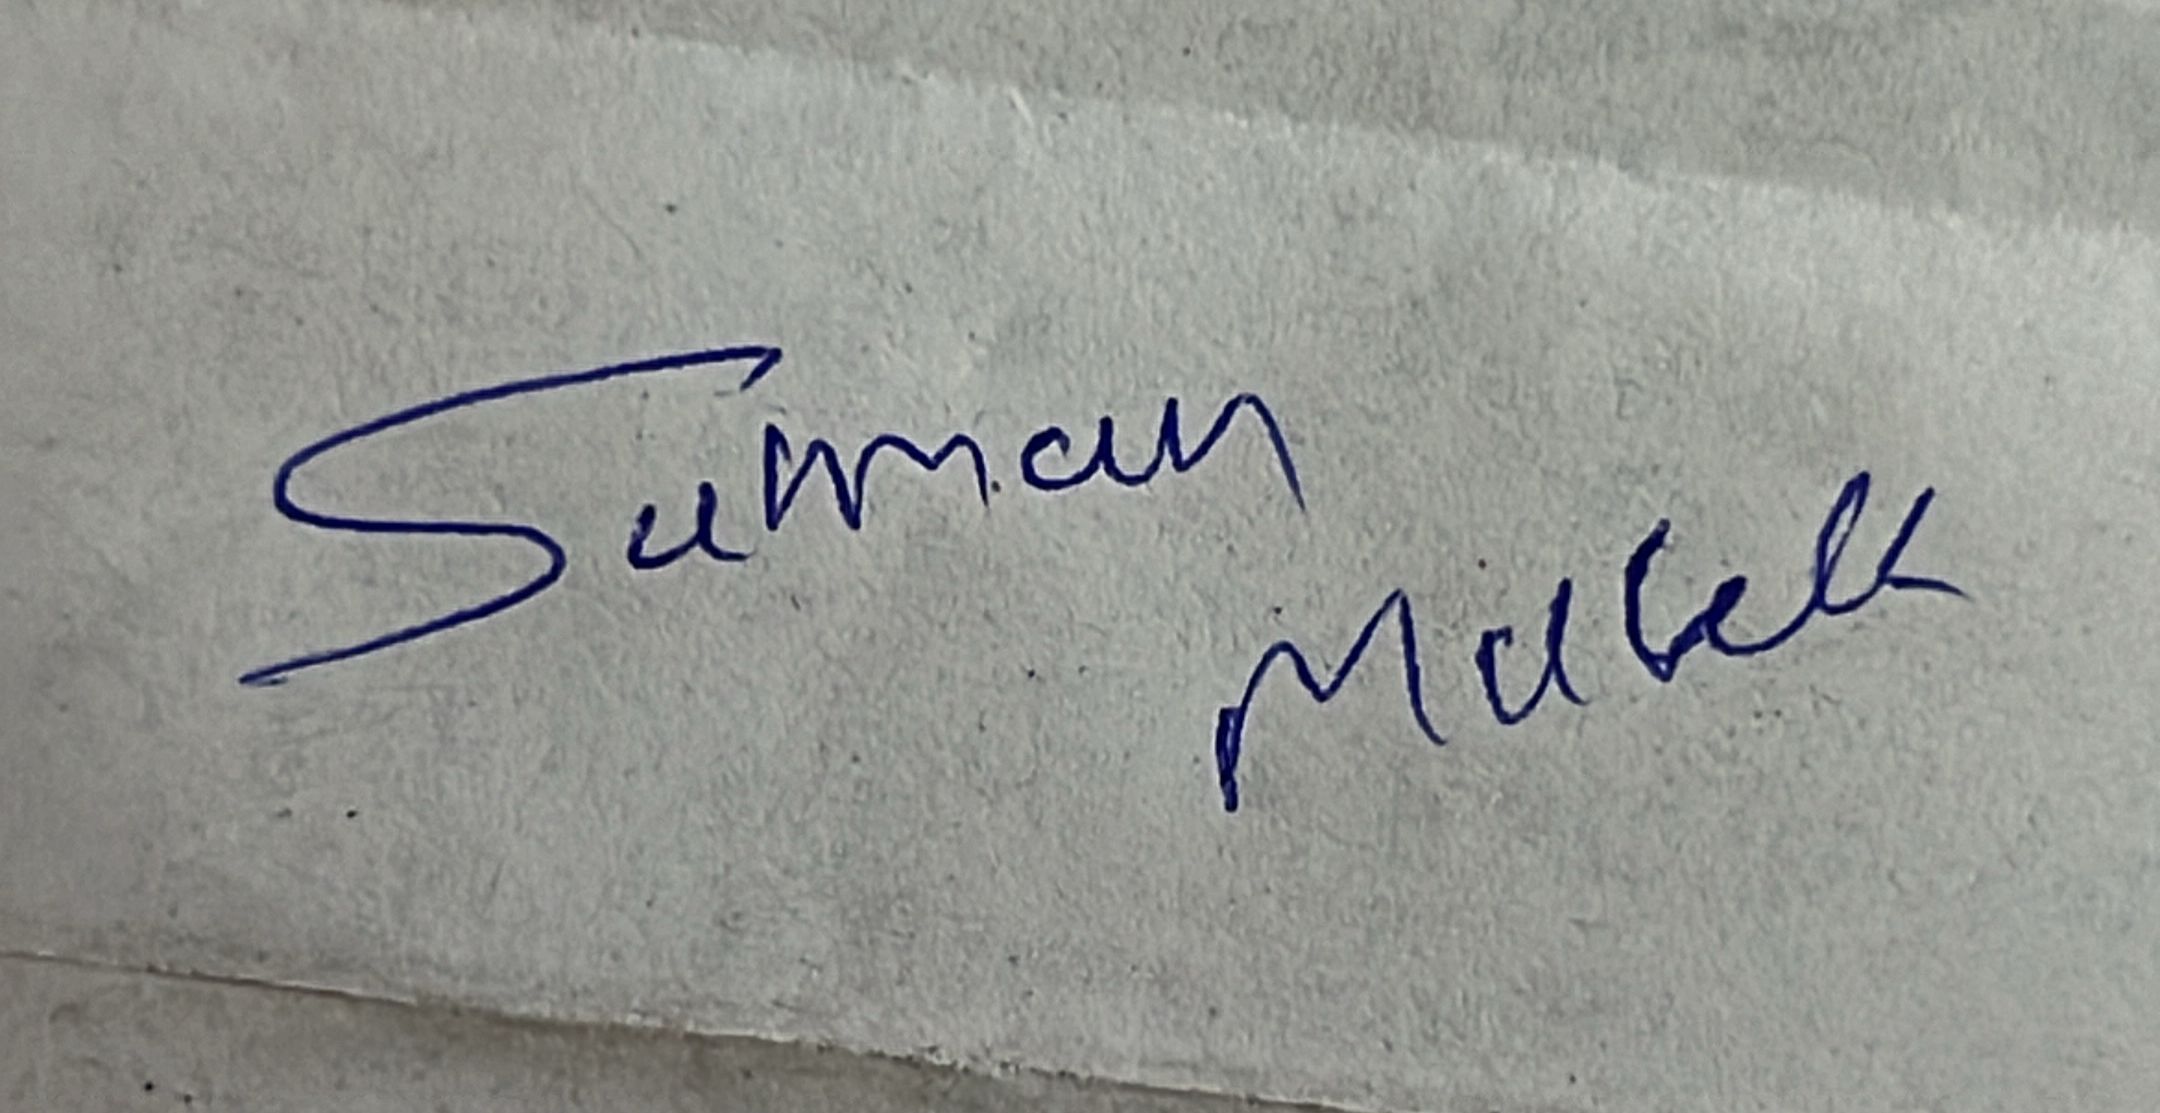 Suman
Malick